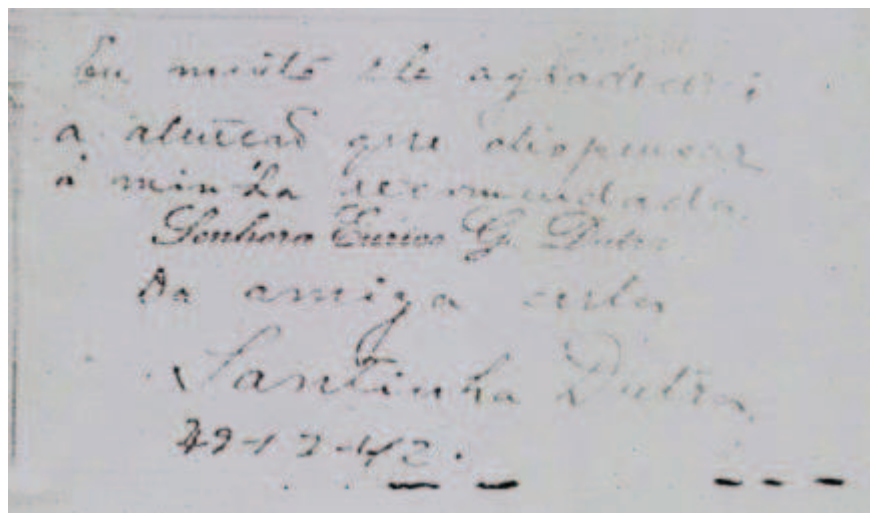 Eu muito lhe agradecerei
a atenção que dispensar
à minha recomendada.
Senhora Eurico G. Dutra
Da amiga certa
Santinha Dutra
29-12-42.